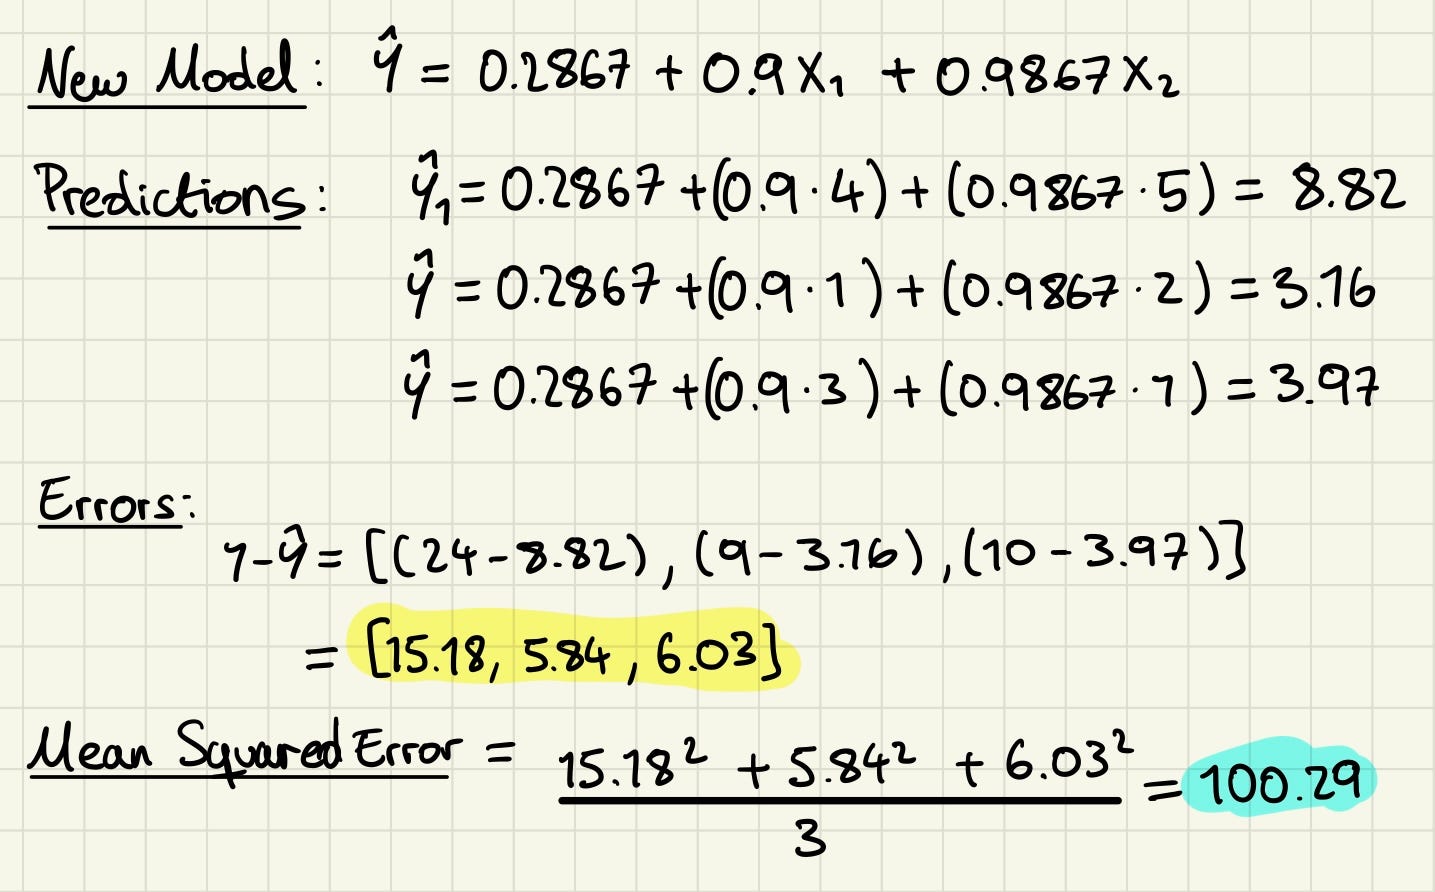 New Model: Ŷ = 0.2867 + 0.9X₁ + 0.9867X₂
Predictions: ŷ₁ = 0.2867 + (0.9 · 4) + (0.9867 · 5) = 8.82
ŷ = 0.2867 + (0.9 · 1) + (0.9867 · 2) = 3.16
ŷ = 0.2867 + (0.9 · 3) + (0.9867 · 1) = 3.97
Errors:
y - ŷ = [(24 - 8.82), (9 - 3.16), (10 - 3.97)]
= [15.18, 5.84, 6.03]
Mean Squared Error = 15.18² + 5.84² + 6.03² = 100.29
3